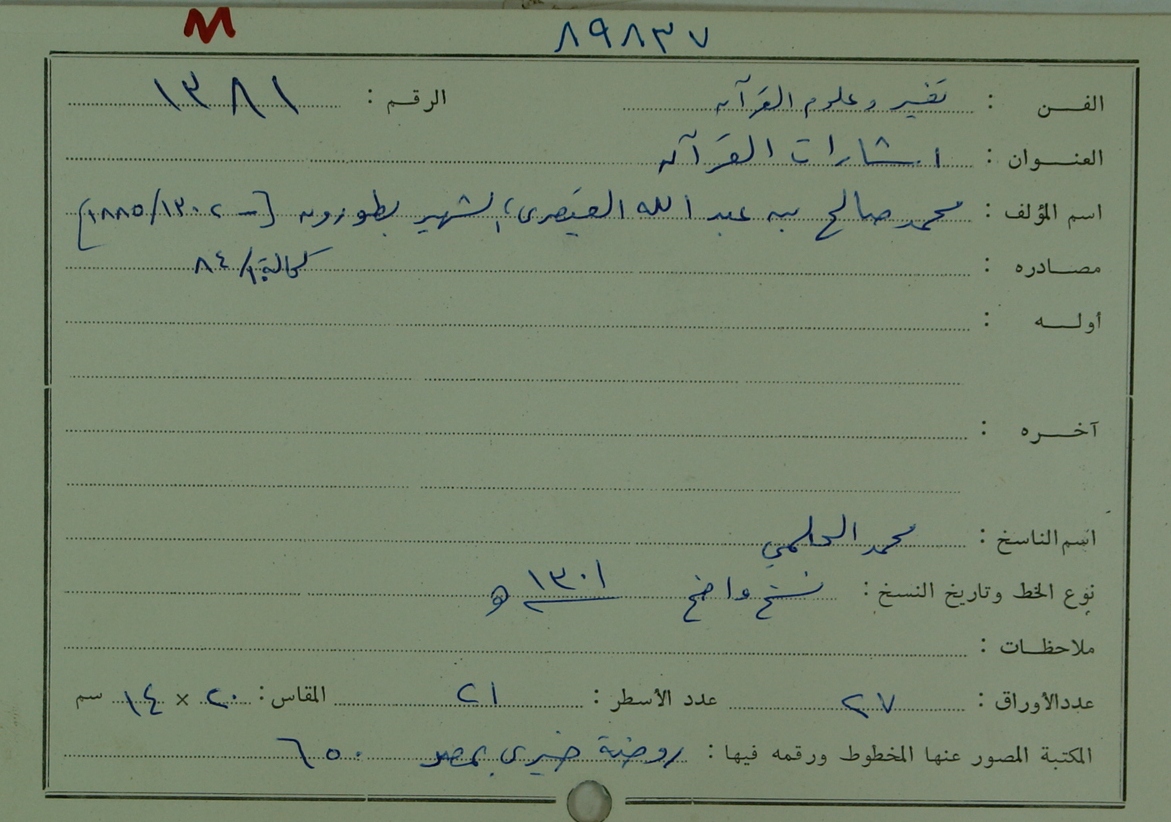 M ٨٩٨٣٧
الفن : تفسير وعلوم القرآن الرقم : ١٣٨١
العنوان : إشارات القرآن
اسم المؤلف : محمد صالح بن عبد الله القيصري، الشهير بطوزون [- ١٣٠٢/١٨٨٥]
مصادره : كحالة ١٠/٨٤
أوله :
آخره :
اسم الناسخ : محمد الحلمي
نوع الخط وتاريخ النسخ : نسخ واضح ١٣٠١ هـ
ملاحظات :
عدد الأوراق : ٢٧ عدد الأسطر : ٢١ المقاس : ٢٠ × ١٤ سم
المكتبة المصور عنها المخطوط ورقمه فيها : روضة خيري بمصر ٦٥٠